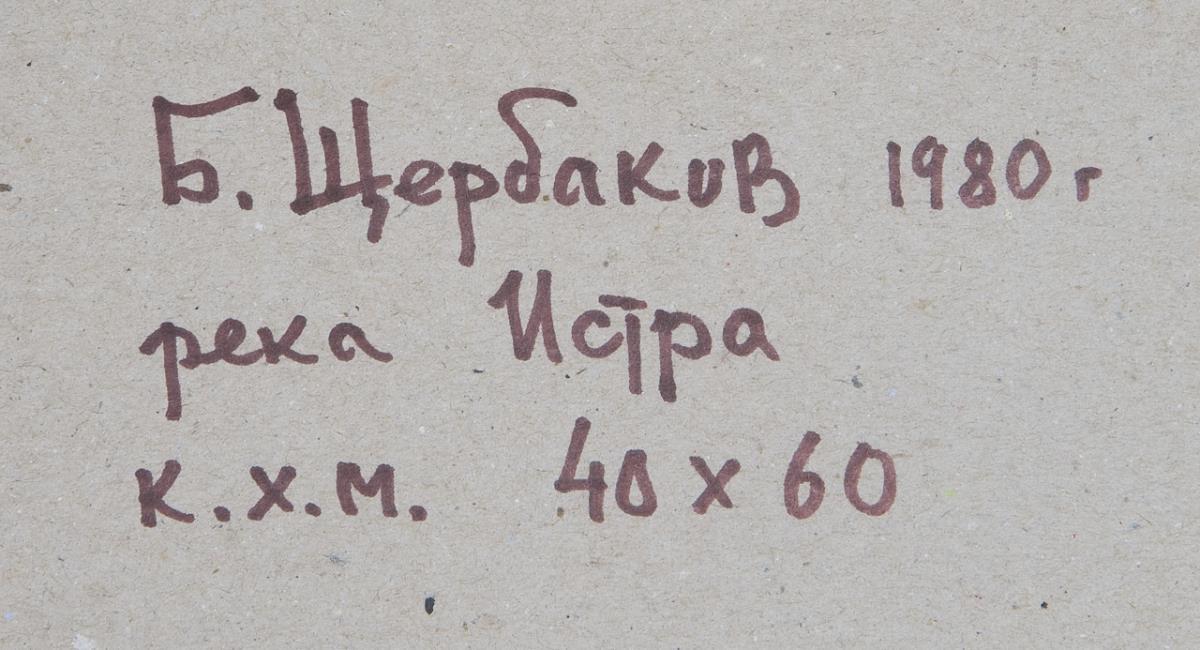 Б. Щербаков 1980 г
река Истра
к.х.м. 40 x 60